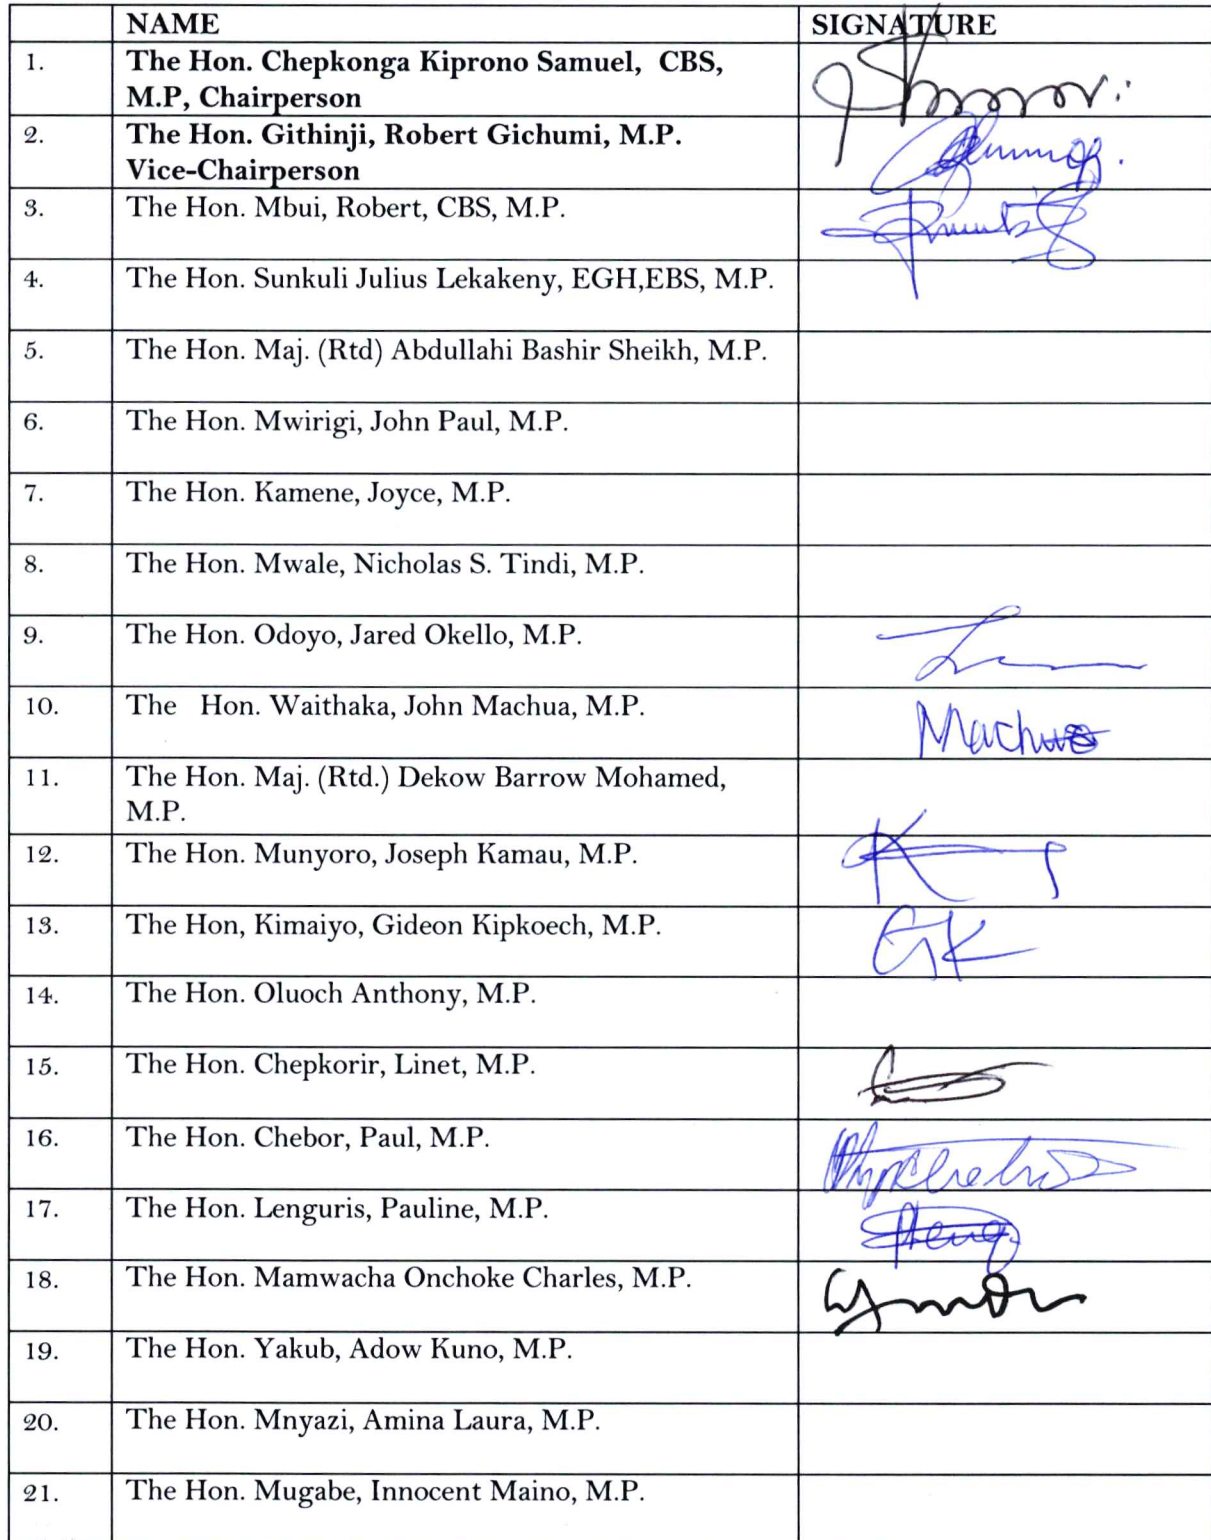 NAME SIGNATURE
1. The Hon. Chepkonga Kiprono Samuel, CBS,
M.P, Chairperson
2. The Hon. Githinji, Robert Gichumi, M.P.
Vice-Chairperson
3. The Hon. Mbui, Robert, CBS, M.P.
4. The Hon. Sunkuli Julius Lekakeny, EGH,EBS, M.P.
5. The Hon. Maj. (Rtd) Abdullahi Bashir Sheikh, M.P.
6. The Hon. Mwirigi, John Paul, M.P.
7. The Hon. Kamene, Joyce, M.P.
8. The Hon. Mwale, Nicholas S. Tindi, M.P.
9. The Hon. Odoyo, Jared Okello, M.P.
10. The Hon. Waithaka, John Machua, M.P.
11. The Hon. Maj. (Rtd.) Dekow Barrow Mohamed,
M.P.
12. The Hon. Munyoro, Joseph Kamau, M.P.
13. The Hon, Kimaiyo, Gideon Kipkoech, M.P. GK
14. The Hon. Oluoch Anthony, M.P.
15. The Hon. Chepkorir, Linet, M.P.
16. The Hon. Chebor, Paul, M.P.
17. The Hon. Lenguris, Pauline, M.P.
18. The Hon. Mamwacha Onchoke Charles, M.P.
19. The Hon. Yakub, Adow Kuno, M.P.
20. The Hon. Mnyazi, Amina Laura, M.P.
21. The Hon. Mugabe, Innocent Maino, M.P.